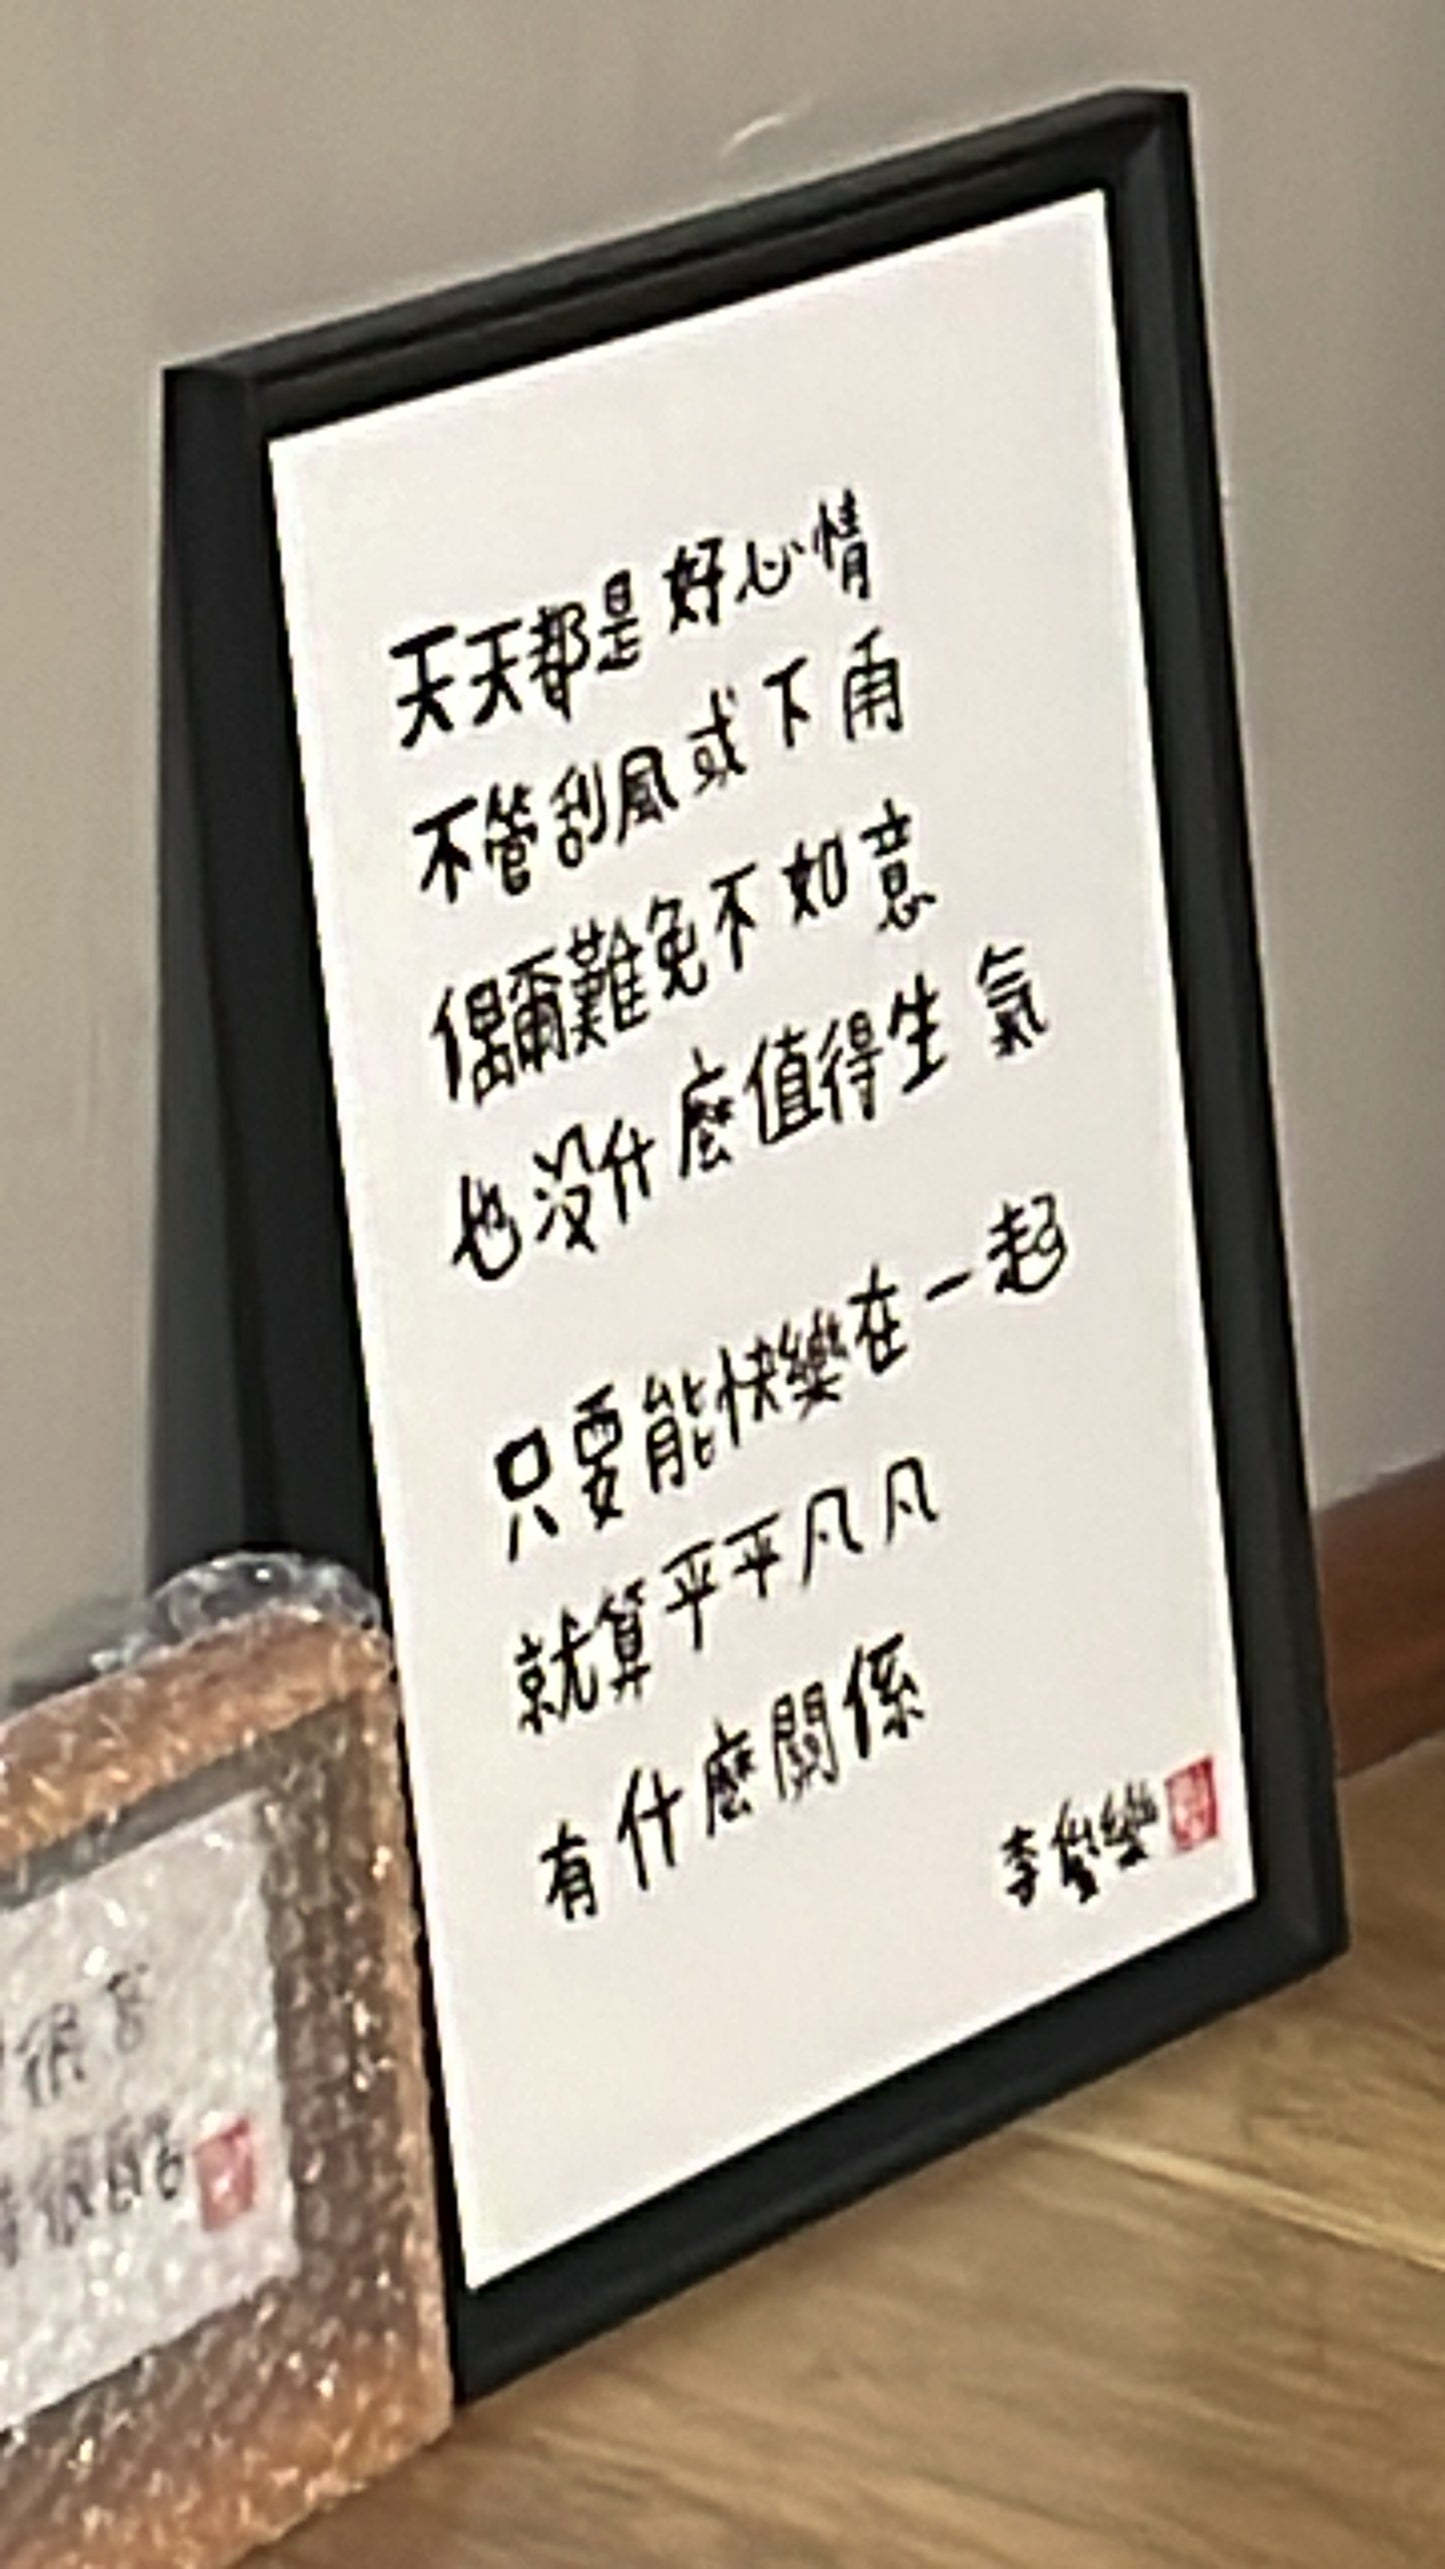 天天都是好心情
不管刮風或下雨
偶爾難免不如意
也沒什麼值得生氣
只要能快樂在一起
就算平平凡凡
有什麼關係
李
很